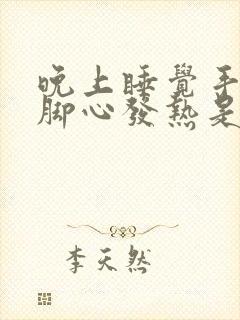 晚上睡覺手
腳心發熱是
李天然